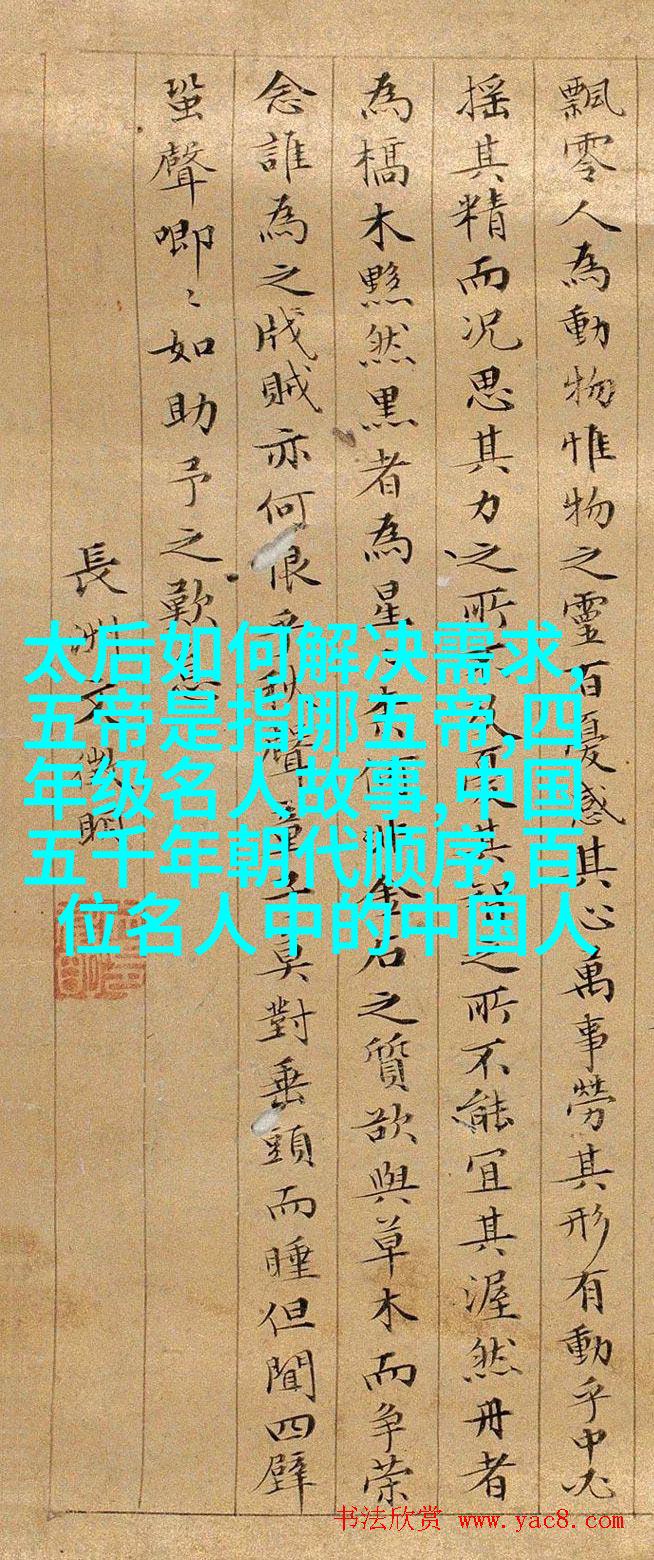 飄零人為動物惟物之靈百憂感其心萬事勞其形有動乎中必
揺其精而況思其力之所其之所不能宜其渥然丹者
為槗木黟然黒者為星金石之質欲與草木而争榮
念誰為之戕賊亦何恨乎秋聲童子莫對垂頭而睡但聞四壁
蛩聲唧〻如助予之歎息
長洲文徵明
太后如何解决需求,
五帝是指哪五帝,四
年级名人故事,中国
五千年朝代顺序,百
位名人中的中国人
书法欣赏 www.yac8.com